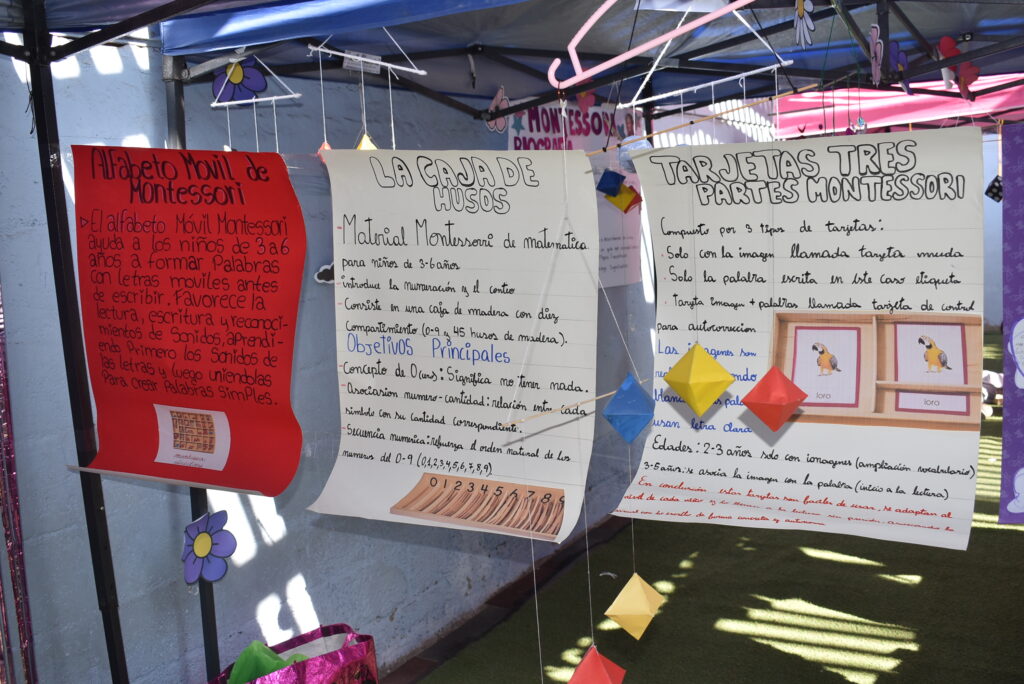 Alfabeto Móvil de
Montessori
El alfabeto Móvil Montessori
ayuda a los niños de 3 a 6
años a formar Palabras
con letras moviles antes
de escribir. Favorece la
lectura, escritura y reconoci-
mientos de Sonidos, aprendi-
endo Primero los Sonidos de
las letras y luego uniendolas
Para crear Palabras simples.
LA CAJA DE
HUSOS
- Material Montessori de matematica
para niños de 3-6 años
- introduce la numeración y el conteo
- Consiste en una caja de madera con diez
Compartimiento (0-9 y 45 husos de madera).
Objetivos Principales
- Concepto de 0 (cero): Significa no tener nada.
- Asociasion numero-cantidad: relación entre cada
simbolo con su cantidad correspondiente.
- Secuencia numerica: Refuerza el orden natural de los
numeros del 0-9 (0,1,2,3,4,5,6,7,8,9)
0 1 2 3 4 5 6 7 8 9
MONTESSORI
BIOGRAFIA
TARJETAS TRES
PARTES MONTESSORI
Compuesto por 3 tipos de tarjetas:
. Solo con la imagen llamada tarjeta muda
. Solo la palabra escrita en este caso etiqueta
. tarjeta imagen + palabras llamada tarjeta de control
para autocorreccion
Las imagenes son
usan letra clara
loro
loro
Edades: 2-3 años solo con imagenes (ampliación vocabulario)
3-6 años: se asocia la imagen con la palabra (inicio a la lectura)
En conclusión estas tarjetas son faciles de usar, se adaptan al